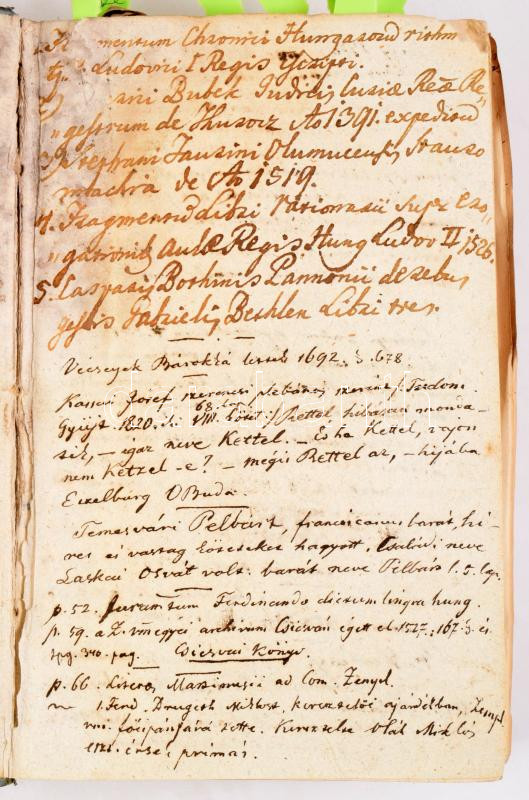 mentum Chronici Hungarorum rithm
Ludovici I Regis
Bubek Judicis Curiæ Reæ Re„
„gestrum de Ao 1391. expeditum
Stephani Taurini Olumucensis Stauro
machia de Ao 1519.
4. Fragmentum Libri Rationarii super ero„
„gationib. aulæ Regis Hung Ludov II 1526.
5. Caspari Bothinis Pannonii de rebus
gestis Gabrielis Bethlen Libri tres.
Vécseyek Bárókká lettek 1692. §. 678.
Kassai Jósef szerencsi plébános szerint /: Tudom.
Gyüjt. 1820. VIII. kötet :/ Rettel hibásan monda-
68. lap
tik, – igaz neve Kettel. – És ha Kettel, vajon
nem Ketzel-e? – mégis Rettel az, – hijába
Eczelburg OBuda.
Temesvári Pelbárt, franciscanus barát, hi-
res és vastag köteteket hagyott. Családi neve
Laskai Osvát volt: barát neve Pelbárt l. 5. lap.
p. 52. Juramentum Ferdinando dictum lingva hung.
p. 59. a Z. vmegyei archivum Csicsván égett el 1527; 167. §. és
340. pag. Csicsvai könyv.
p. 66. Literæ Maximilii ad Com. Zempl.
1. Ferd. Drugeth ajándékban, Zempl
vm. főispánjává tette. Keresztelte Oláh Miklós
érsek prímás.